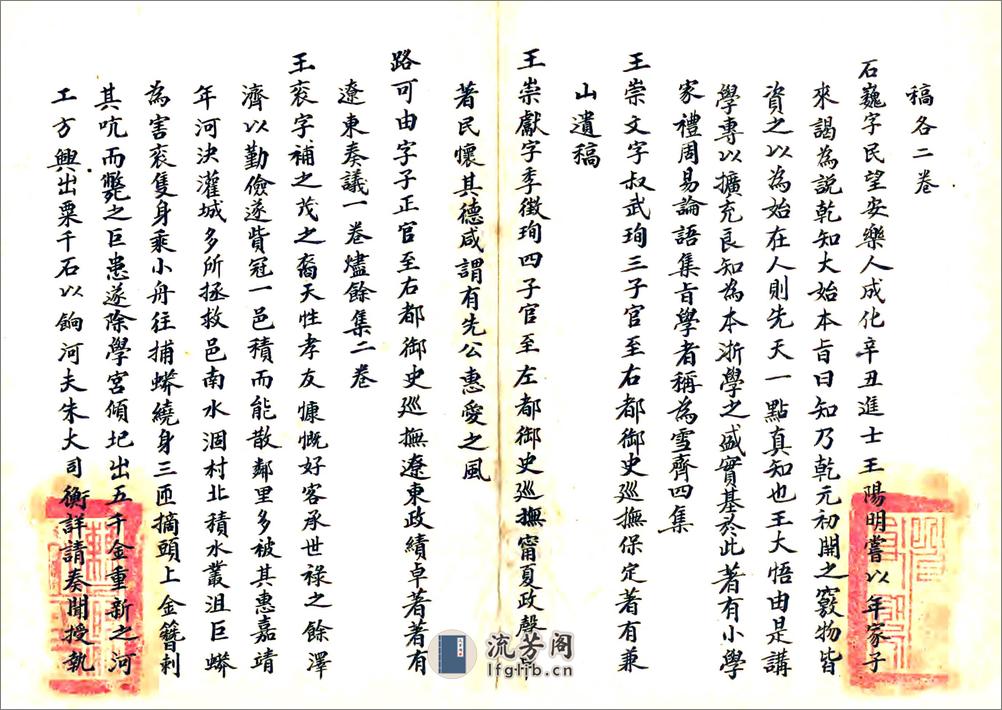 稿各二卷
石巍字民望安樂人成化辛丑進士王陽明嘗以年家子
來謁為說乾知大始本旨曰知乃乾元初開之竅物皆
資之以為始在人則先天一點真知也王大悟由是講
學專以擴充良知為本浙學之盛實基於此著有小學
家禮周易論語集旨學者稱為雪齊四集
王崇文字叔武珣三子官至右都御史廵撫保定著有兼
山遺稿
王崇獻字季徵珣四子官至左都御史廵撫甯夏政聲
著民懷其德咸謂有先公惠愛之風
路可由字子正官至右都御史廵撫遼東政績卓著著有
遼東奏議一卷燼餘集二卷
王衮字補之茂之裔天性孝友慷慨好客承世祿之餘澤
濟以勤儉遂貲冠一邑積而能散鄰里多被其惠嘉靖
年河決灌城多所拯救邑南水涸村北積水叢沮巨蟒
為害衮隻身乘小舟往捕蟒繞身三匝摘頭上金簪刺
其吭而斃之巨患遂除學宮傾圮出五千金重新之河
工方興出粟千石以餉河夫朱大司衡詳請奏聞授執
流芳阁
lfglib.cn